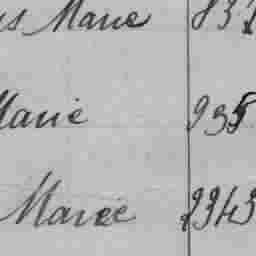 us Marie 832
Marie 935
Marie 2343